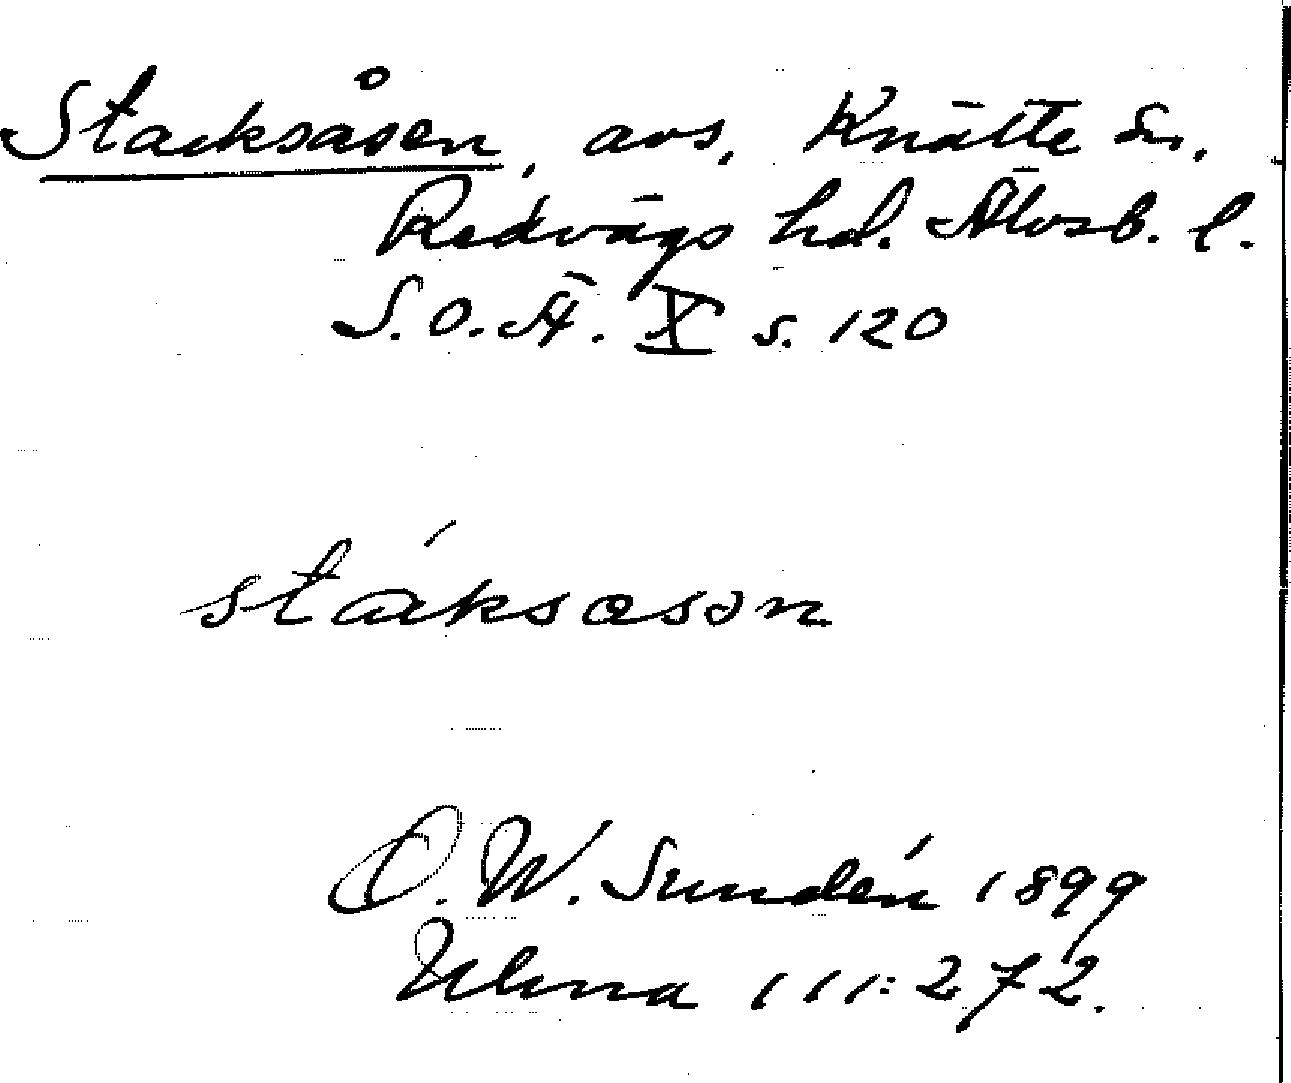 Stacksåsen, avs, Knätte sn,
Redvägs hd. Älvsb. l.
S.O.Ä. X s. 120
stáksasən
D. W. Sundén 1899
Ulma 111:272.